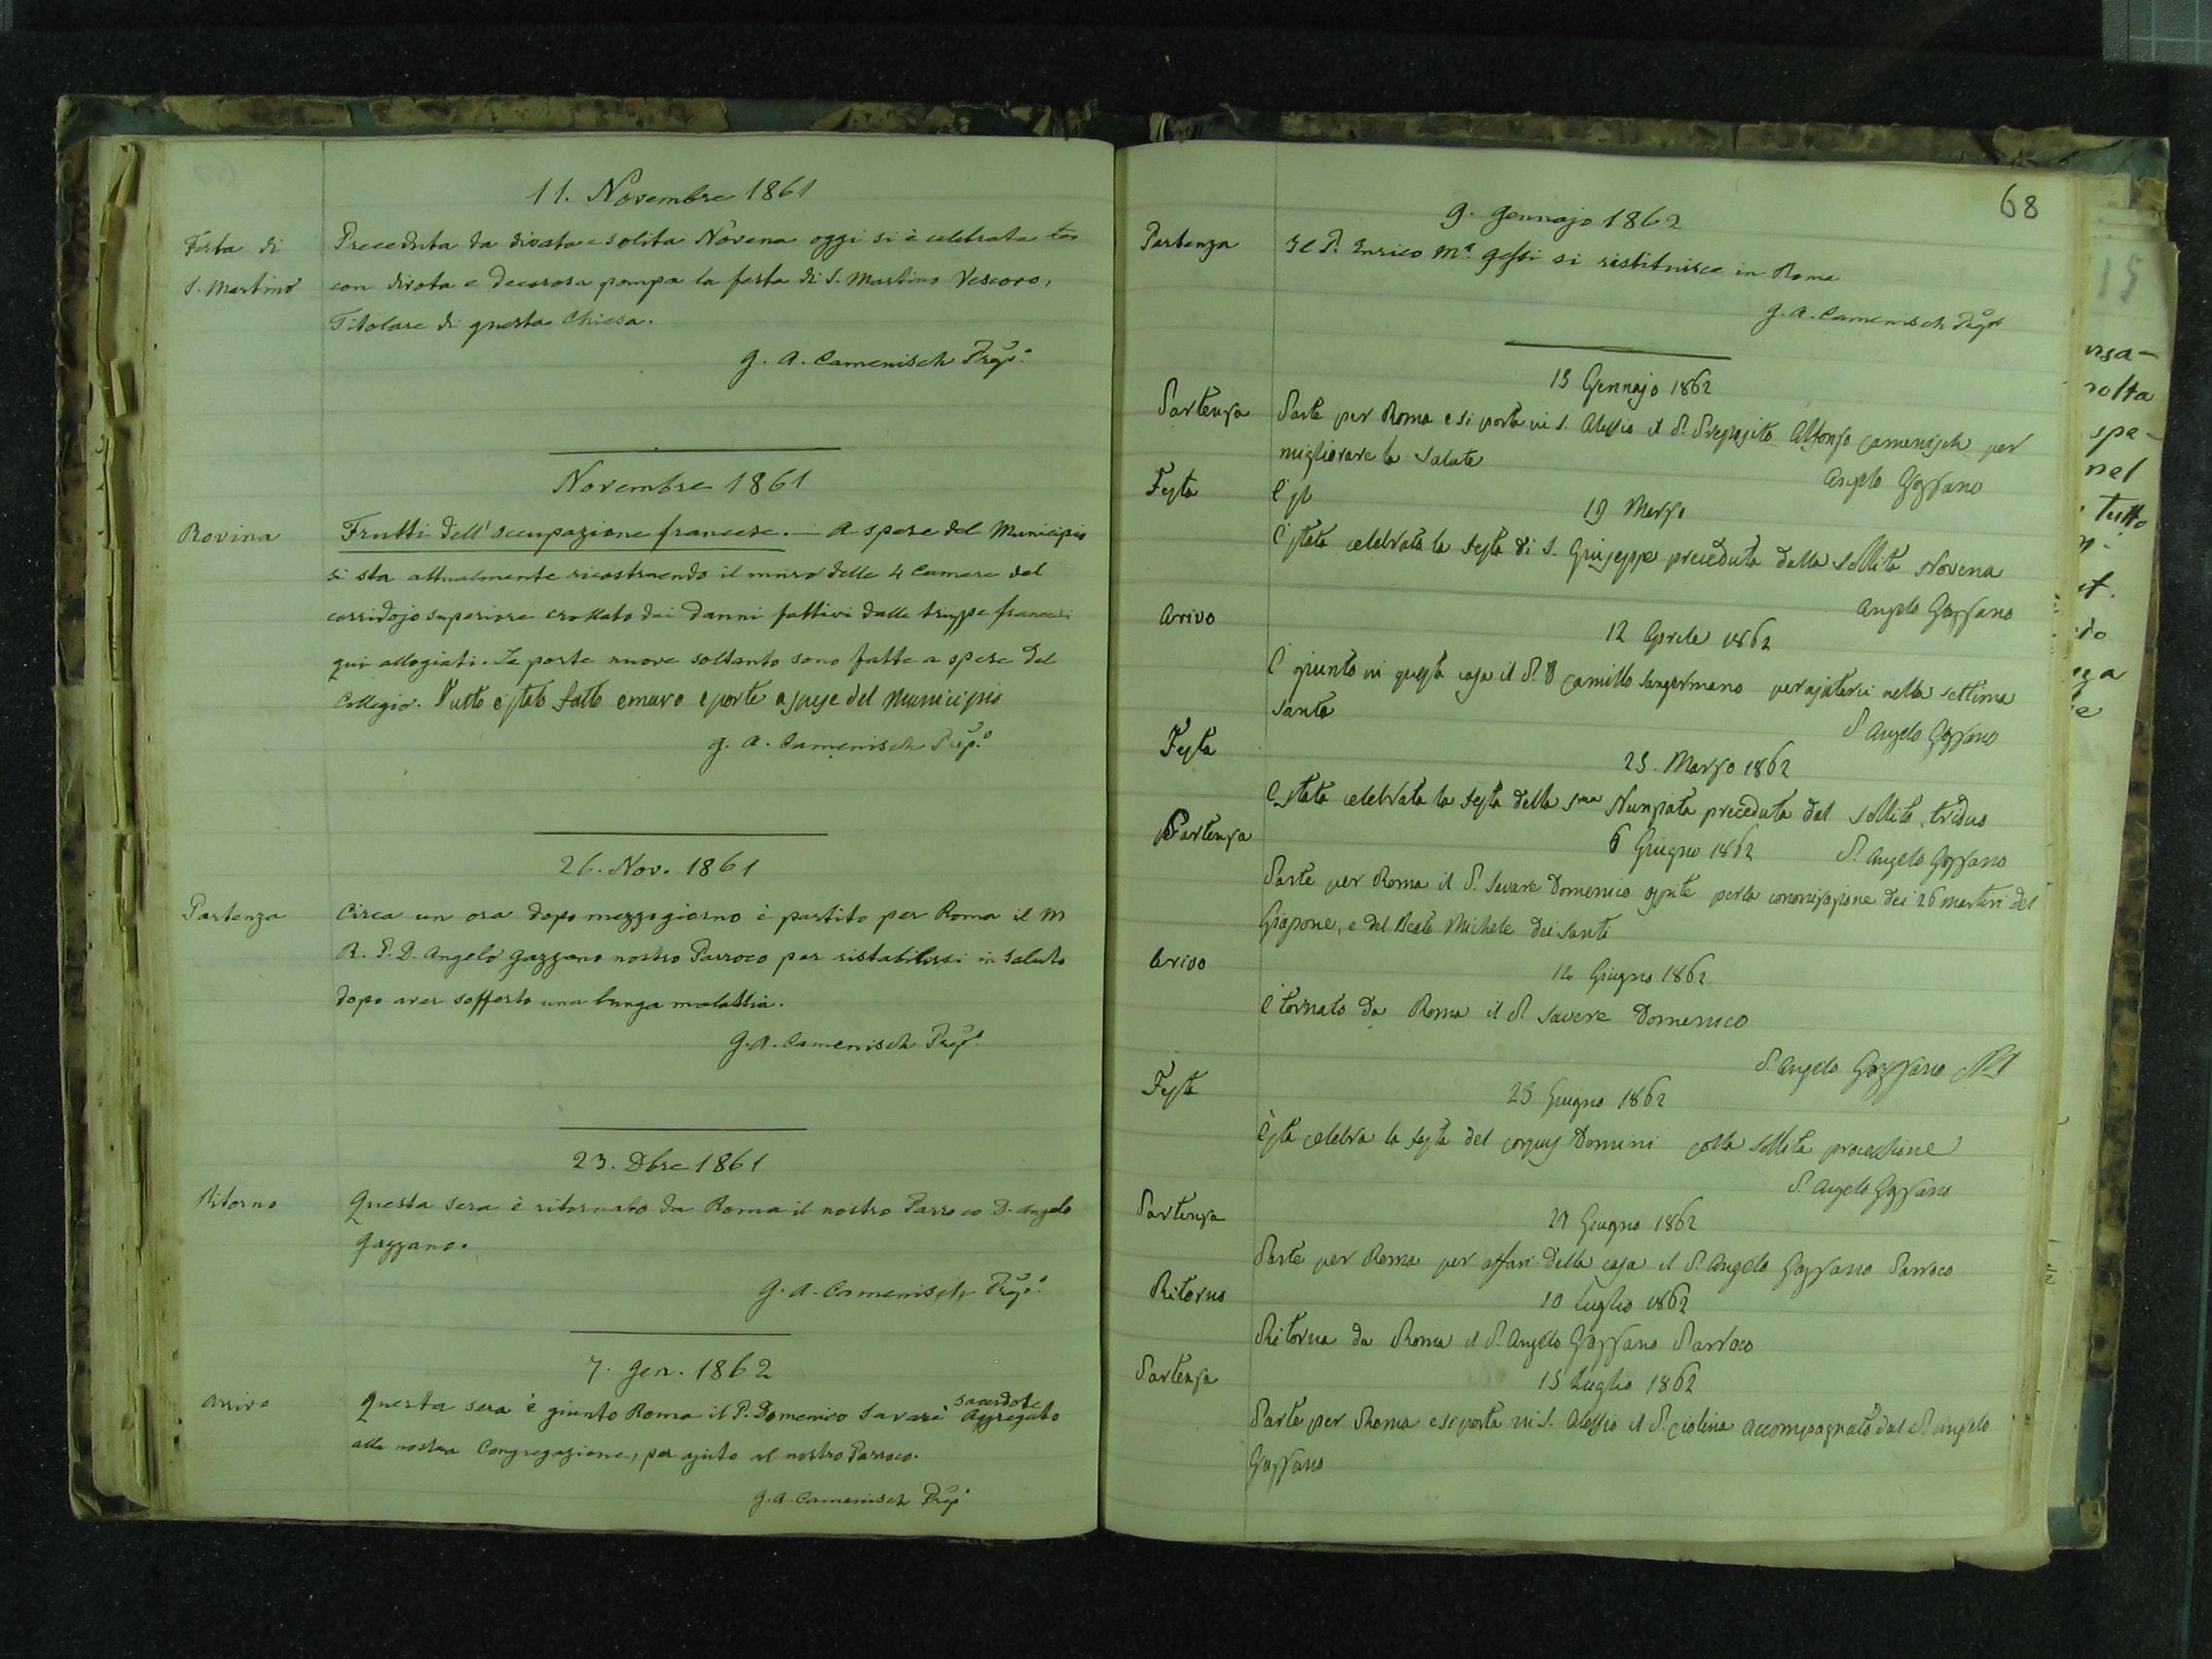 11. Novembre 1861
Festa di S. Martino
Preceduta da divota e solita Novena oggi si è celebrata
con divota e decorosa pompa la festa di S. Martino Vescovo,
Titolare di questa Chiesa.
G. A. Camenisch Prep.o
Novembre 1861
Rovina
Frutti dell'occupazione francese. — A spese del Municipio
si sta attualmente ricostruendo il muro delle 4 Camere del
corridojo superiore crollato dai danni fattivi dalle truppe francesi
qui allogiati. Le porte nuove soltanto sono fatte a spese del
Collegio. Tutto è stato fatto e muro e porte a spese del Municipio
G. A. Camenisch Prep.o
26. Nov. 1861
Partenza
Circa un ora dopo mezzogiorno è partito per Roma il M
R. P. D. Angelo Gazzano nostro Parroco per ristabilirsi in salute
dopo aver sofferto una lunga malattia.
G. A. Camenisch Prep.o
23. Dbre 1861
Ritorno
Questa sera è ritornato da Roma il nostro Parroco D. Angelo
Gazzano.
G. A. Camenisch Prep.o
7. Gen. 1862
Arrivo
sacerdote
Questa sera è giunto Roma il P. Domenico Savarè Aggregato
alla nostra Congregazione, per ajuto al nostro Parroco.
G. A. Camenisch Prep.o
68
9. Gennajo 1862
Partenza
Il P. Enrico M.a Gessi si ristituisce in Roma
G. A. Camenisch Prep.o
15 Gennajo 1862
Partenza
Parte per Roma e si porta in S. Alessio il P. Preposito Alfonso Camenisch per
migliorare la Salute
Angelo Gazzano
Festa
19 Marzo
È stata celebrata la festa di S. Giuseppe preceduta dalla sollita Novena
Angelo Gazzano
Arivo
12 Aprile 1862
È giunto in questa casa il P. D Camillo Sangermano per ajutarci nella settima
Santa
P. Angelo Gazzano
Festa
25. Marzo 1862
È stata celebrata la festa della Sma Nunziata preceduta dal sollito triduo
P. Angelo Gazzano
Partenza
6 Giugno 1862
Parte per Roma il P. Savare Domenico ospite per la cononizazione dei 26 martiri del
Giapone, e del Beato Michele dei Santi
Arivo
12 Giugno 1862
È tornato da Roma il P. Savere Domenico
P. Angelo Gazzano
Festa
23 Giugno 1862
È sta celebra la festa del corpus Domini colla sollita processione
P. Angelo Gazzano
Partenza
Giugno 1862
Parte per Roma per affari della casa il P. Angelo Gazzano Parroco
Ritorno
10 Luglio 1862
Ritorna da Roma il P. Angelo Gazzano Parroco
Partenza
15 Luglio 1862
Parte per Roma e si porta in S. Alessio il P. Ciolina accompagnato dal P. Angelo
Gazzano